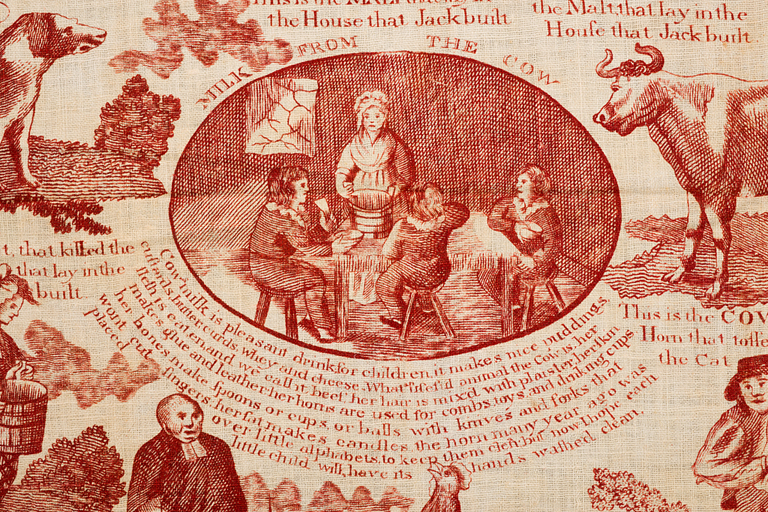 This is the MALT that lay in
the House that Jack built
the Malt, that lay in the
House that Jack built.
MILK FROM THE COW
t, that killed the
that lay in the
built
Cow milk is pleasant drink for children, it makes nice puddings,
custards, butter, curds, whey and cheese. What useful animal the Cow is, her
flesh is eaten, and we call it beef, her hair is mixed with plaister, her skin
makes glue and leather, her horns are used for combs, toys, and drinking cups
her bones make spoons or cups, or balls with knives and forks that
wont cut fingers, her fat makes candles, the horn many year ago was
placed over little alphabets, to keep them clean, but now I hope each
little child will have its hands washed clean.
This is the COW
Horn that tosse
the Cat